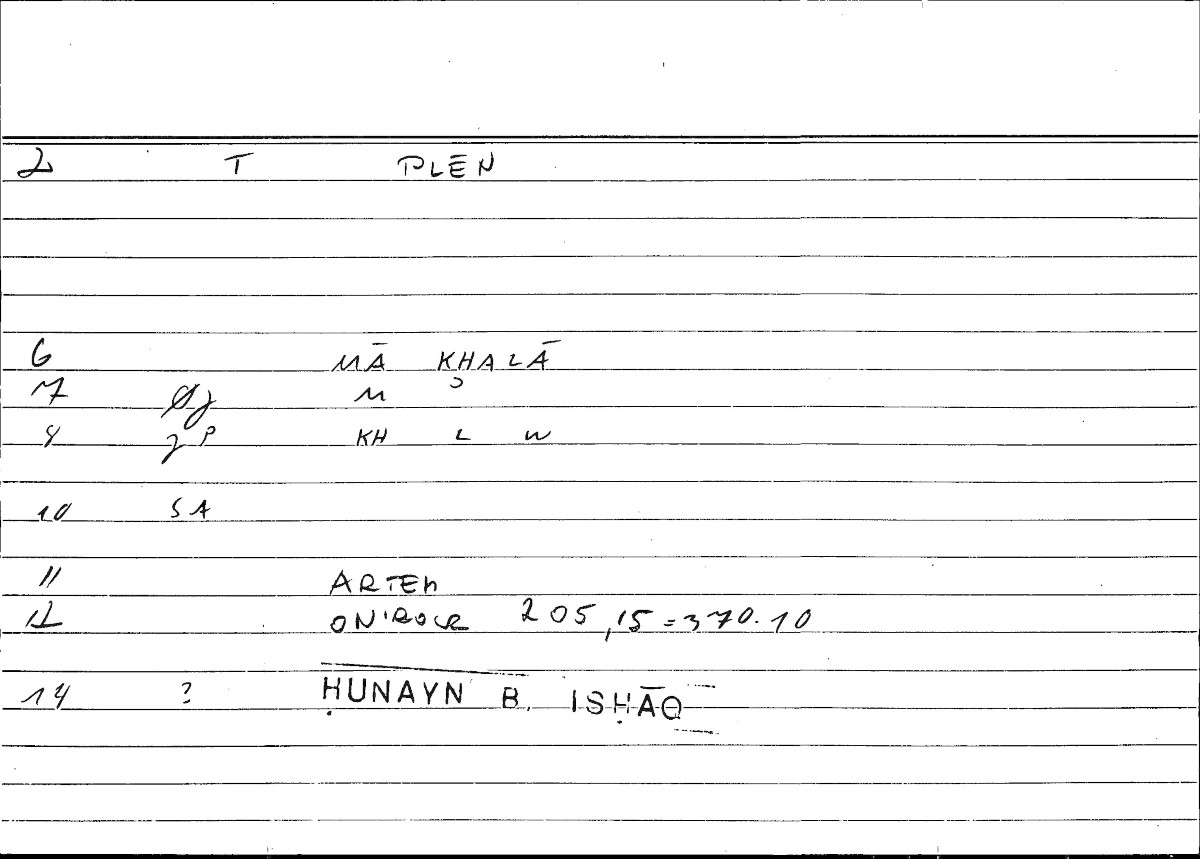 2 T PLĒN
6 MĀ KHALĀ
7 M
8 P KH L W
10 SA
11 ARTEM
12 ONIROCR 205,15=370.10
14 ? ḤUNAYN B. ISḤĀQ